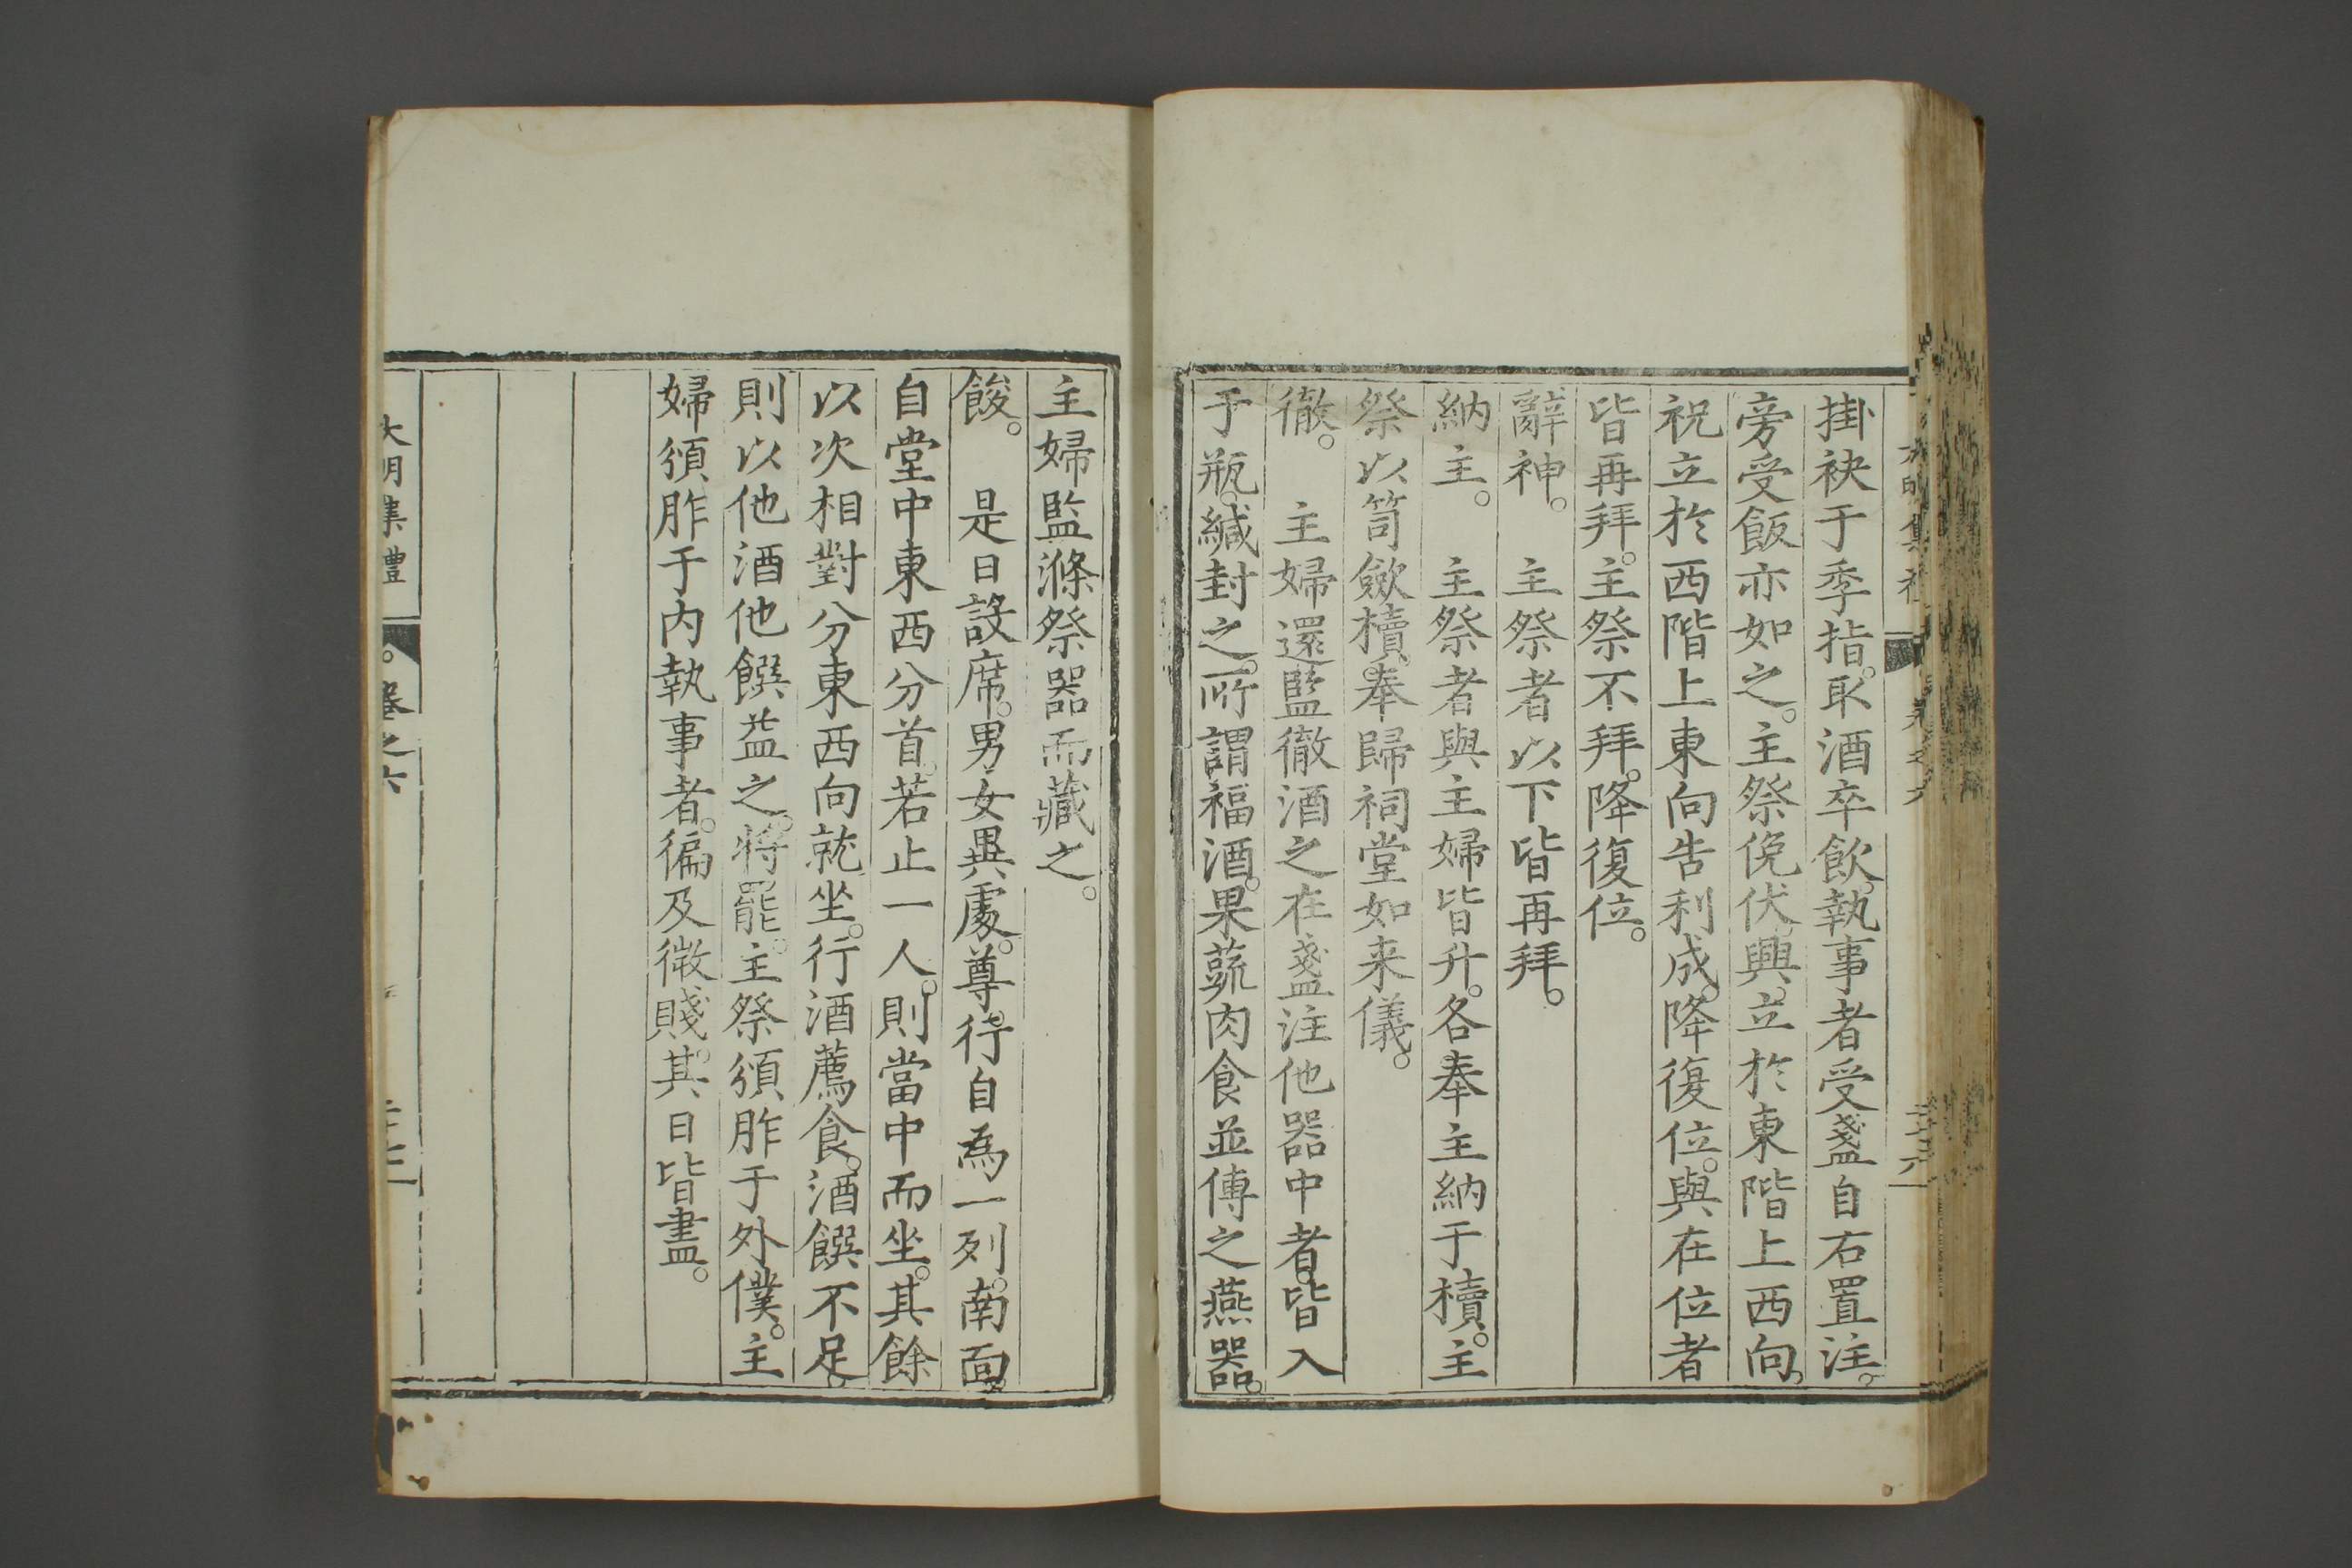 掛袂于季指。取酒卒飲。執事者受盞自右置注。
旁受飯亦如之。主祭俛伏。興。立於東階上西向。
祝立於西階上東向告利成。降復位。與在位者
皆再拜。主祭不拜。降復位。
辭神。　主祭者以下皆再拜。
納主。　主祭者與主婦皆升。各奉主納于櫝。主
祭以笥斂櫝。奉歸祠堂如来儀。
徹。　主婦還監徹酒之在盞注他器中者。皆入
于瓶。緘封之。所謂福酒。果蔬肉食並傳之燕器。
主婦監滌祭器而藏之。
餕。　是日設席。男女異處。尊行自為一列。南面。
自堂中東西分首。若止一人。則當中而坐。其餘
以次相對分東西向就坐。行酒薦食。酒饌不足。
則以他酒他饌益之。將罷。主祭頒胙于外僕。主
婦頒胙于内執事者。徧及微賤。其日皆盡。
大明集禮
卷之六